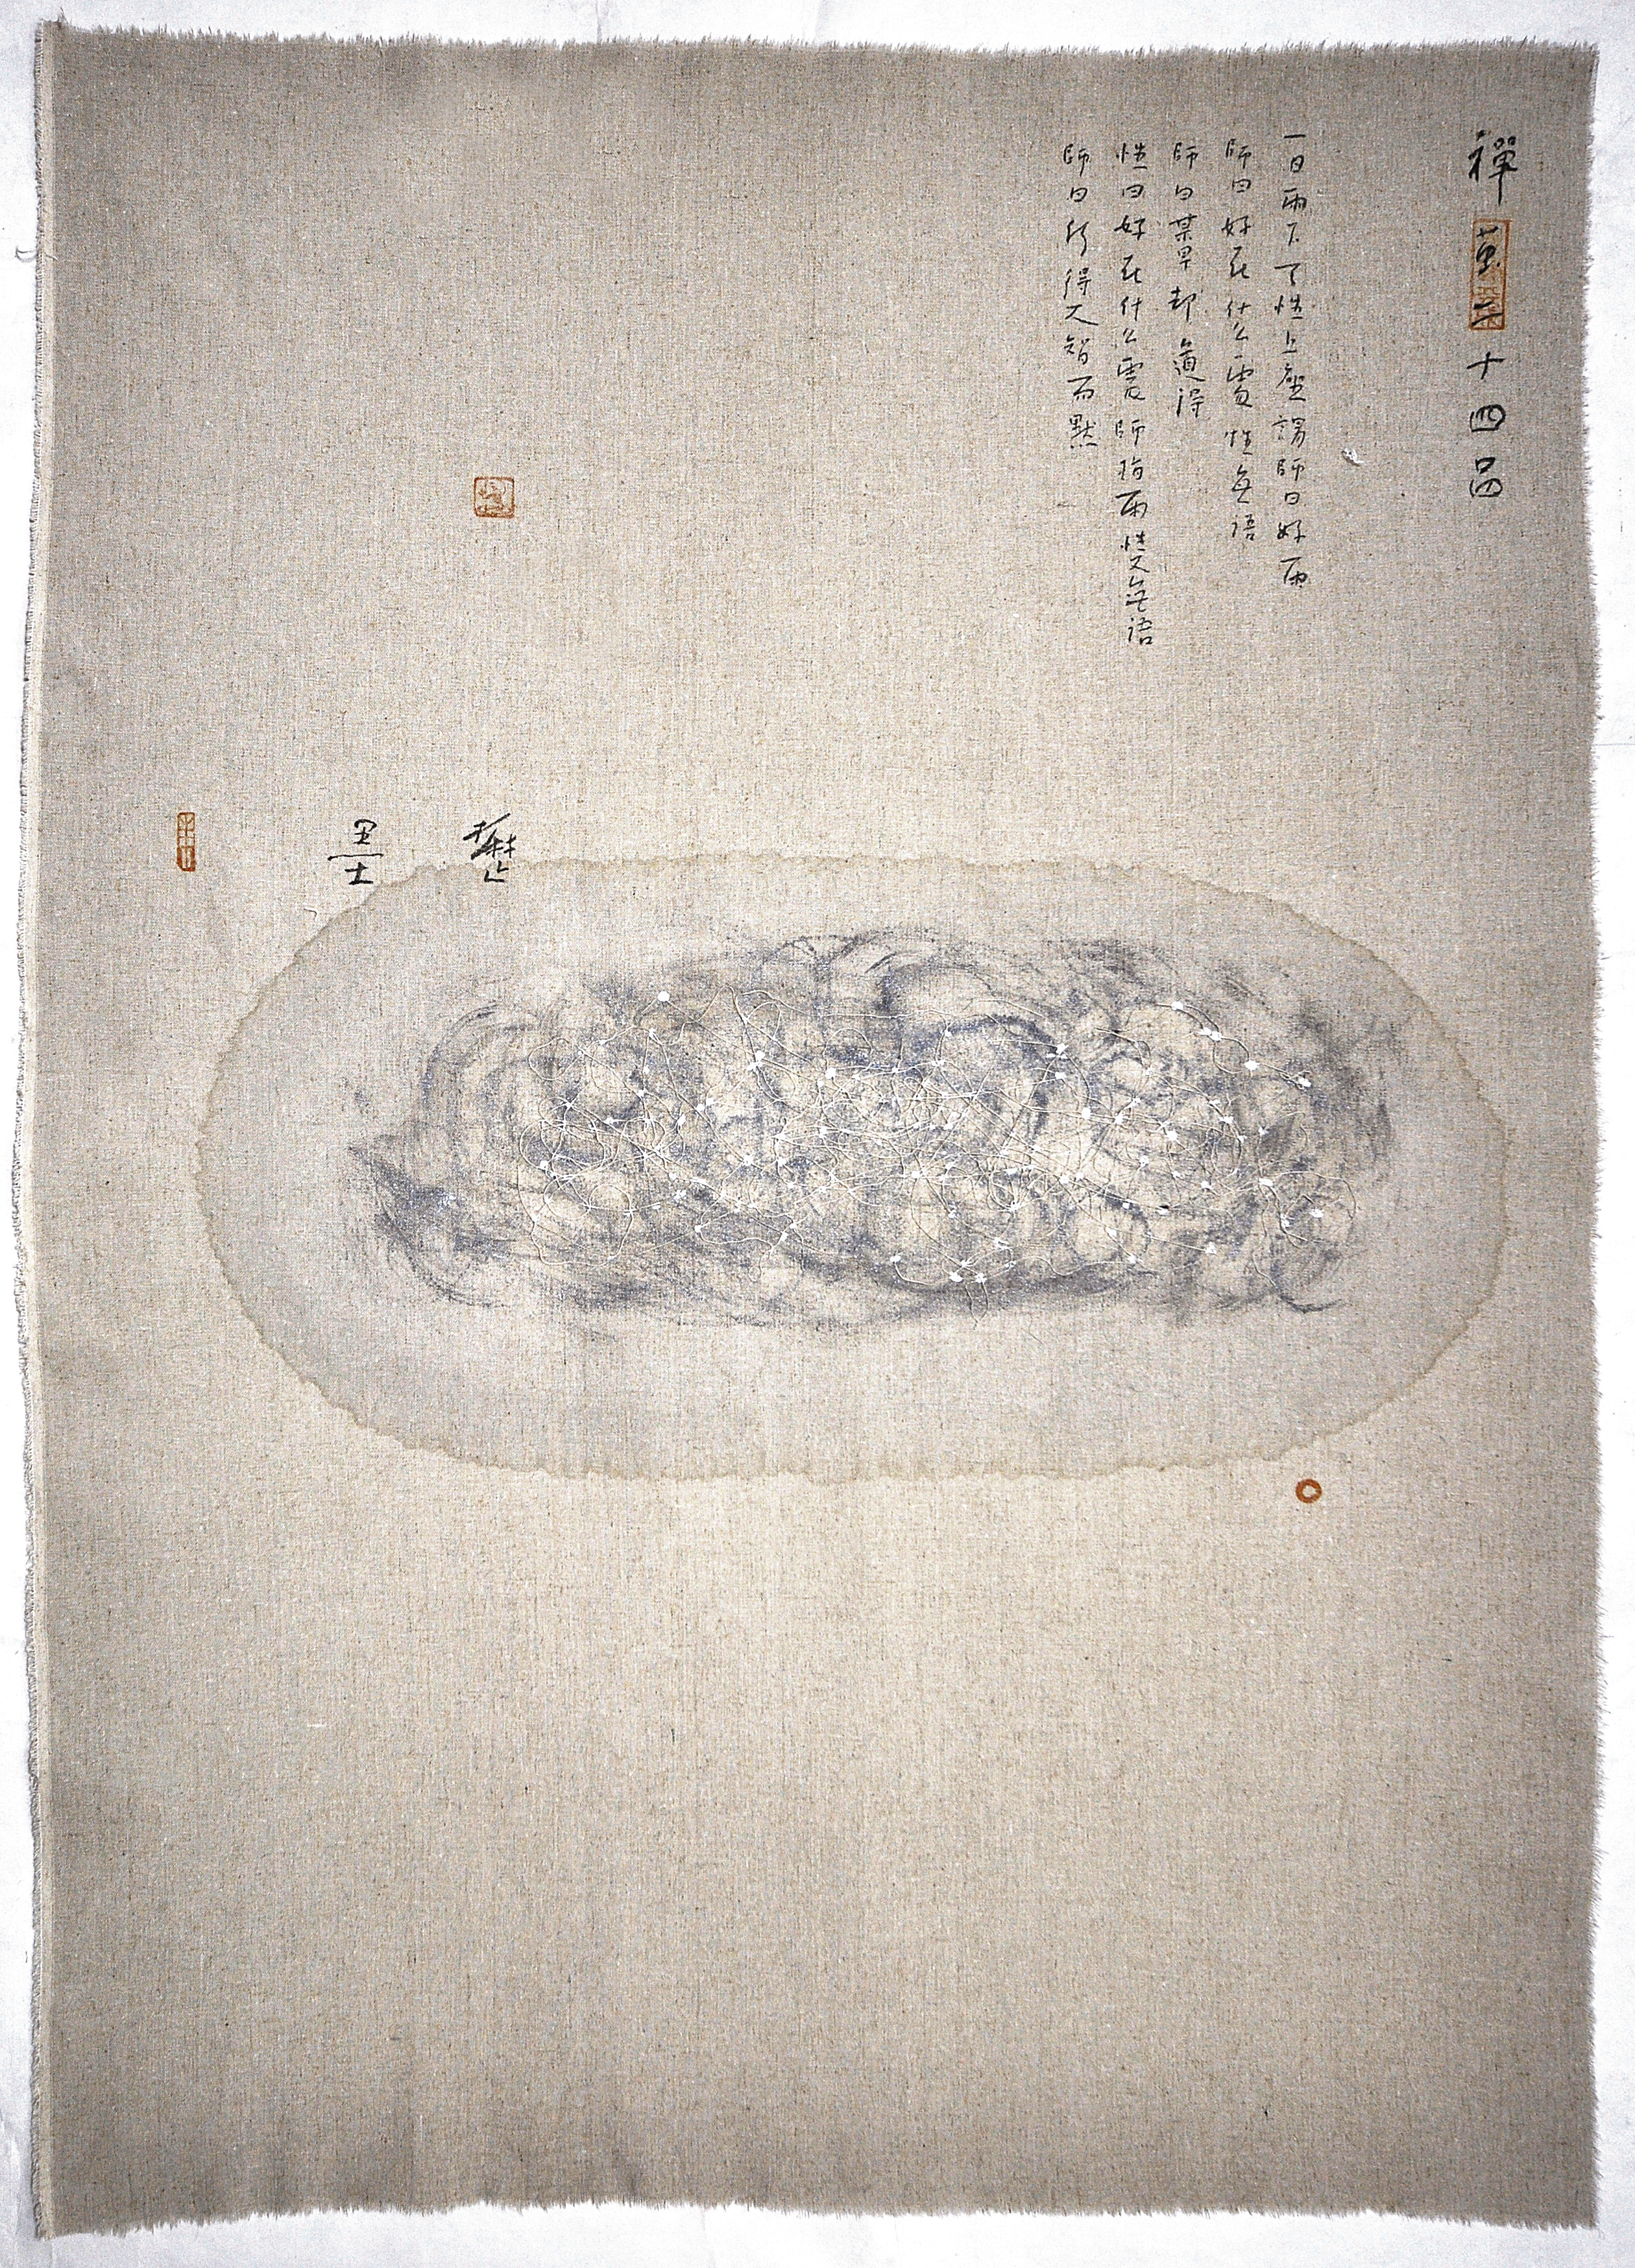 禪十四品
一日雨下了性上座謂師曰好雨
師曰好在什么處性無語
師曰某甲却道得
性曰好在什么處師指雨性又無語
師曰何得大智而默
墨